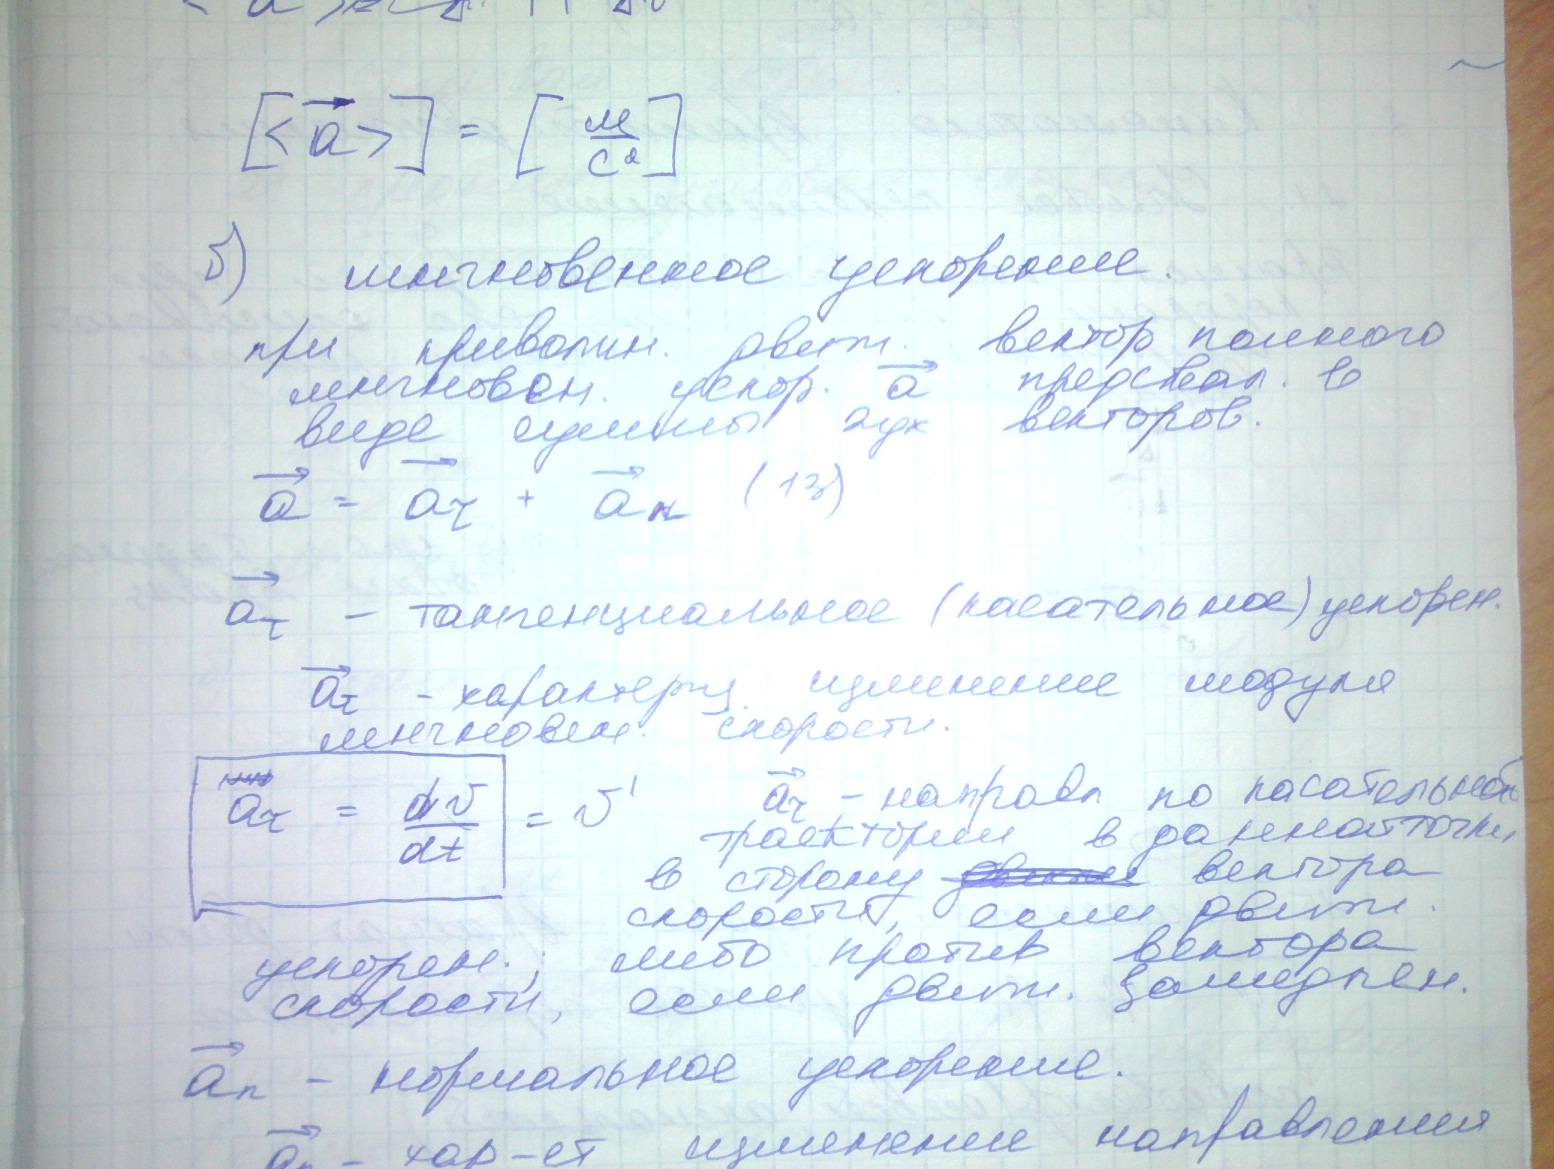 [<a⃗>] = [м/с²]
б) мгновенное ускорение.
при криволин. движ. вектор полного
мгновен. ускор. a⃗ представл. в
виде суммы двух векторов.
a⃗ = a⃗τ + a⃗n (13)
a⃗τ – тангенциальное (касательное) ускорен.
a⃗τ – характериз. изменение модуля
мгновен. скорости.
aτ = dv/dt = v'
a⃗τ – направл по касательной
траектории в данной точке,
в сторону вектора
скорости, если движ.
ускорен.; либо против вектора
скорости, если движ. замедлен.
a⃗n – нормальное ускорение.
a⃗n – хар-ет изменение направления